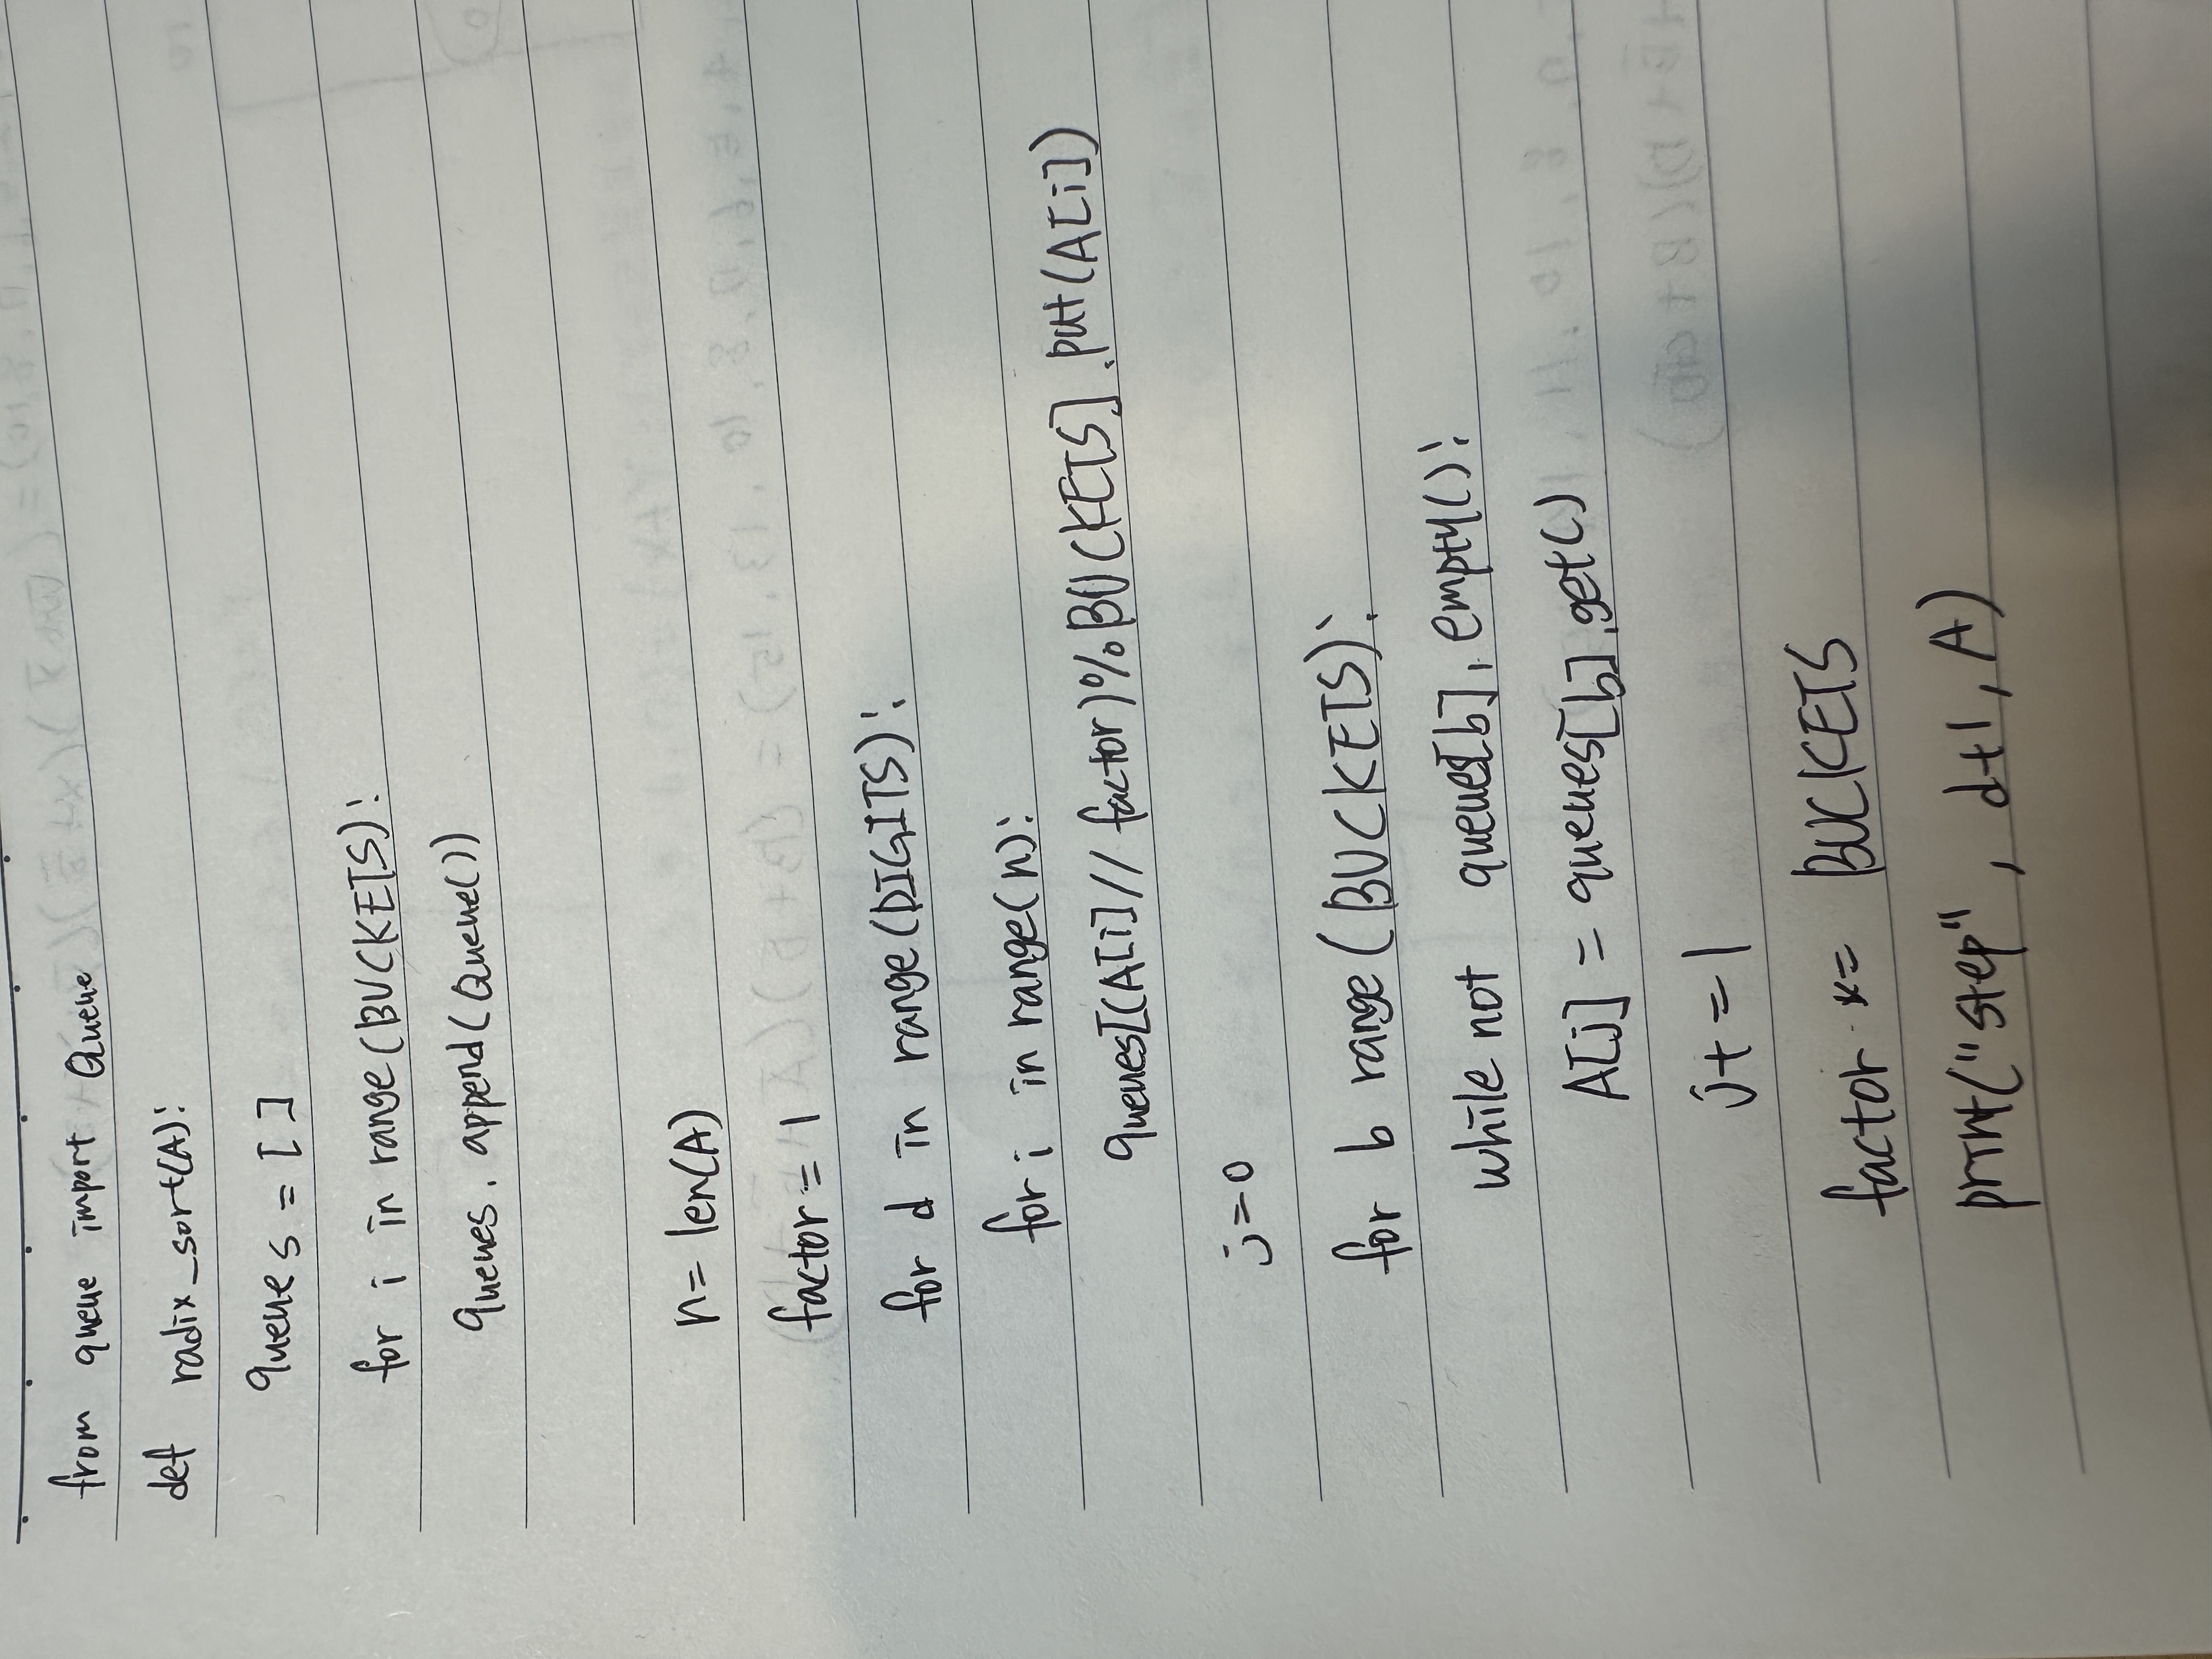 from queue import Queue
def radix_sort(A):
queues = []
for i in range(BUCKETS):
queues.append(Queue())
n= len(A)
factor = 1
for d in range(DIGITS):
for i in range(n):
queues[(A[i]//factor)%BUCKETS].put(A[i])
j=0
for b range(BUCKETS):
while not queues[b].empty():
A[j] = queues[b].get()
j+=1
factor *= BUCKETS
print("step", d+1, A)